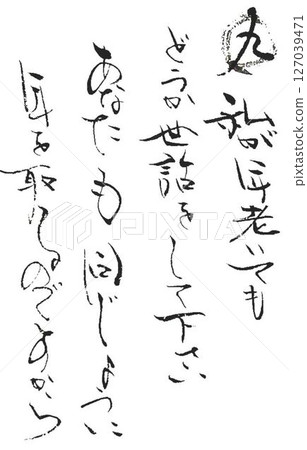 九
私が年老いても
どうか世話をして下さい
あなたも同じように
年を取るのですから
PIXTA
127039471